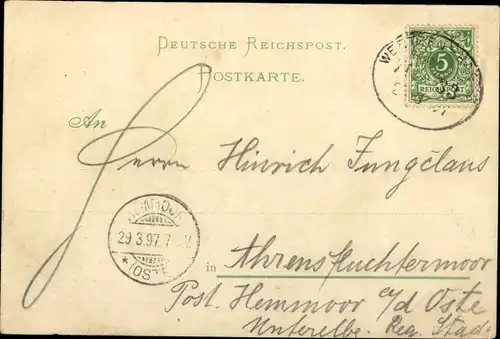 DEUTSCHE REICHSPOST.
POSTKARTE.
5
REICHSPOST
An
Herrn Hinrich Jungčlaus
HEMMOOR
29.3.97. 7
* (OSTE)
in Ahrensfluchtermoor
Post. Hemmoor a/d Oste
Unterelbe. Reg. Stade